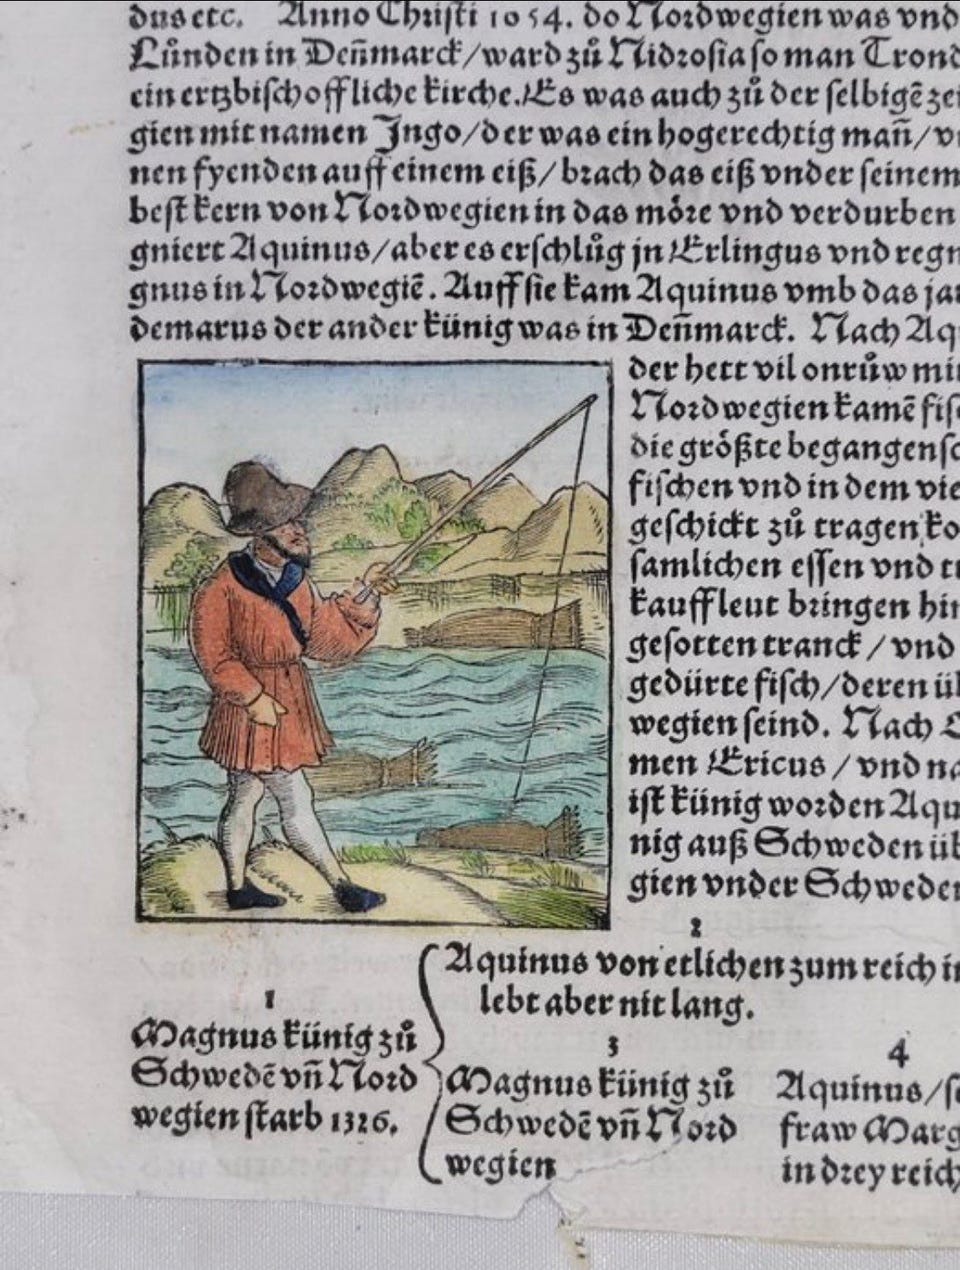 dus etc. Anno Christi 1054. do Nordwegien was vnd
Lůnden in Deñmarck/ward zů Nidrosia so man Trond
ein ertzbischoffliche kirche. Es was auch zů der selbigē zei
gien mit namen Jngo/der was ein hogerechtig mañ/v
nen fyenden auff einem eiß/brach das eiß vnder seinem
best kern von Nordwegien in das möre vnd verdurben
gniert Aquinus/aber es erschlůg jn Erlingus vnd regn
gnus in Nordwegiē. Auff sie kam Aquinus vmb das jar
demarus der ander künig was in Deñmarck. Nach Aq
der hett vil onrůw mi
Nordwegien kamē fisc
die größte begangensc
fischen vnd in dem vie
geschickt zů tragen ko
samlichen essen vnd tr
kauffleut bringen hin
gesotten tranck / vnd
gedürte fisch/deren ü
wegien seind. Nach
men Ericus / vnd na
ist künig worden Aqu
nig auß Schweden üb
gien vnder Schweden
1
Magnus künig zů
Schwedē vñ Nord
wegien starb 1326.
2
Aquinus von etlichen zum reich in
lebt aber nit lang.
3
Magnus künig zů
Schwedē vñ Nord
wegien
4
Aquinus/s
fraw Marg
in drey reich